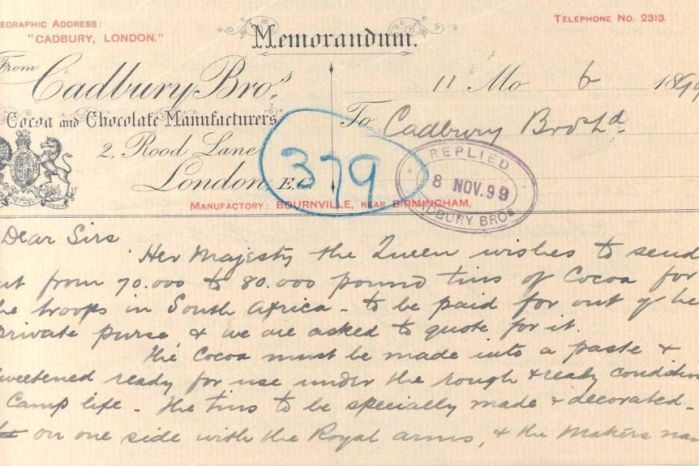 EGRAPHIC ADDRESS:
"CADBURY, LONDON."
TELEPHONE No. 2313.
Memorandum.
From
Cadbury Bros.
Cocoa and Chocolate Manufacturers
2, Rood Lane
London, E.C.
MANUFACTORY: BOURNVILLE, NEAR BIRMINGHAM.
11 Mo 6 1899
To Cadbury Bros Ld
379
REPLIED
8 NOV. 99
DBURY BROS
Dear Sirs
Her Majesty the Queen wishes to send
ut from 70.000 to 80.000 pound tins of Cocoa for
he troops in South Africa - to be paid for out of he
private purse & we are asked to quote for it.
The Cocoa must be made into a paste &
sweetened ready for use under the rough & ready condition
Camp life. The tins to be specially made & decorated -
on one side with the Royal arms, & the Makers nam